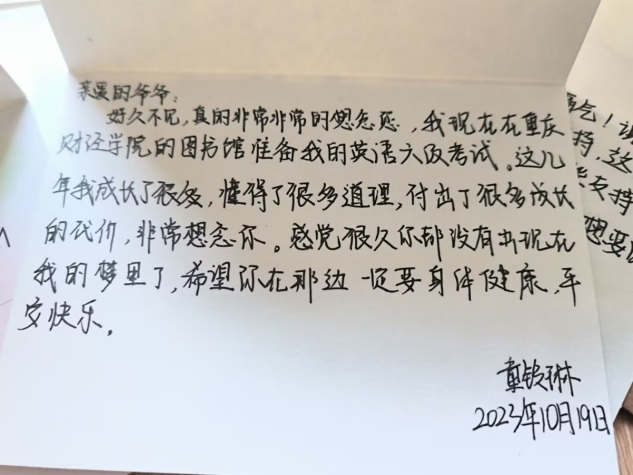 亲爱的爷爷：
好久不见，真的非常非常的想念您，我现在在重庆
财经学院的图书馆准备我的英语六级考试。这几
年我成长了很多，懂得了很多道理，付出了很多成长
的代价，非常想念你。感觉很久你都没有出现在
我的梦里了，希望你在那边一定要身体健康，平
安快乐。
2023年10月19日
气！
持，这
支持
想要